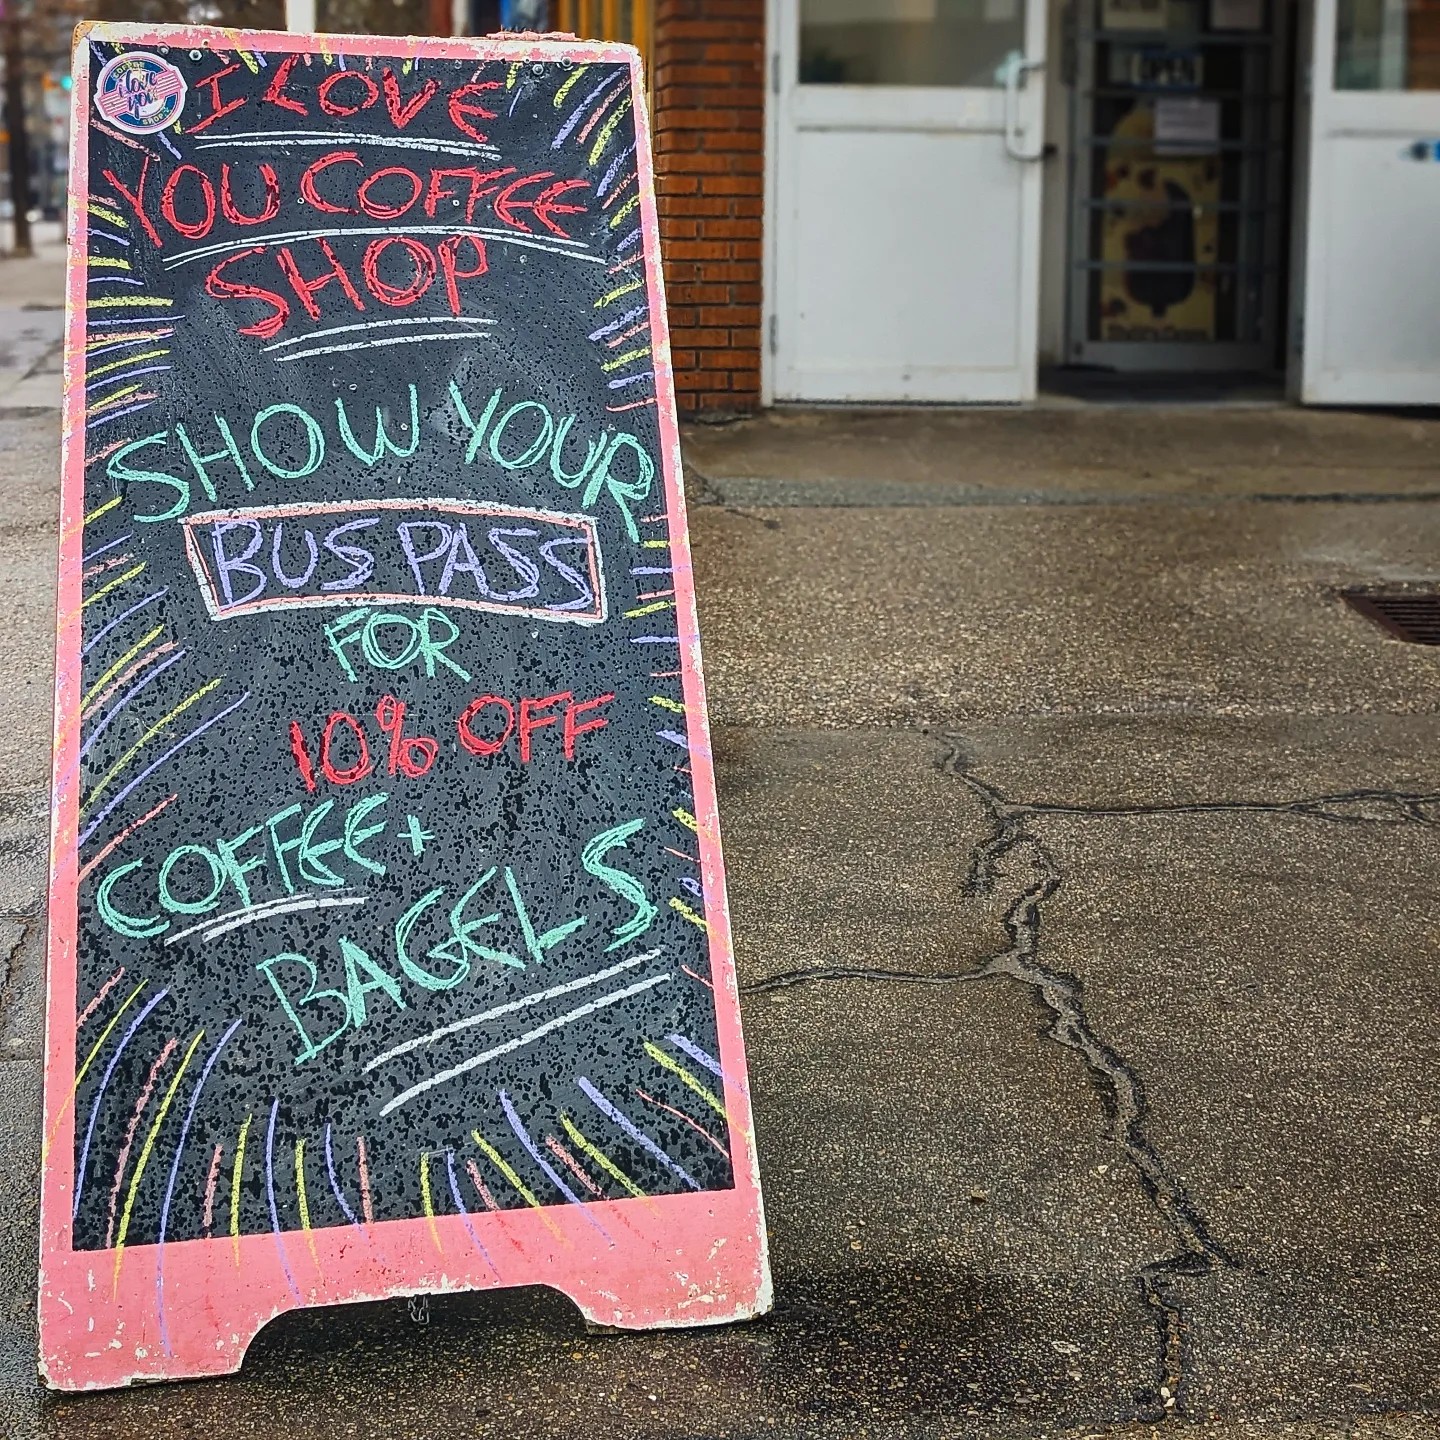 COFFEE
I love you
SHOP
I LOVE
YOU COFFEE
SHOP
SHOW YOUR
BUS PASS
FOR
10% OFF
COFFEE +
BAGELS
OPEN